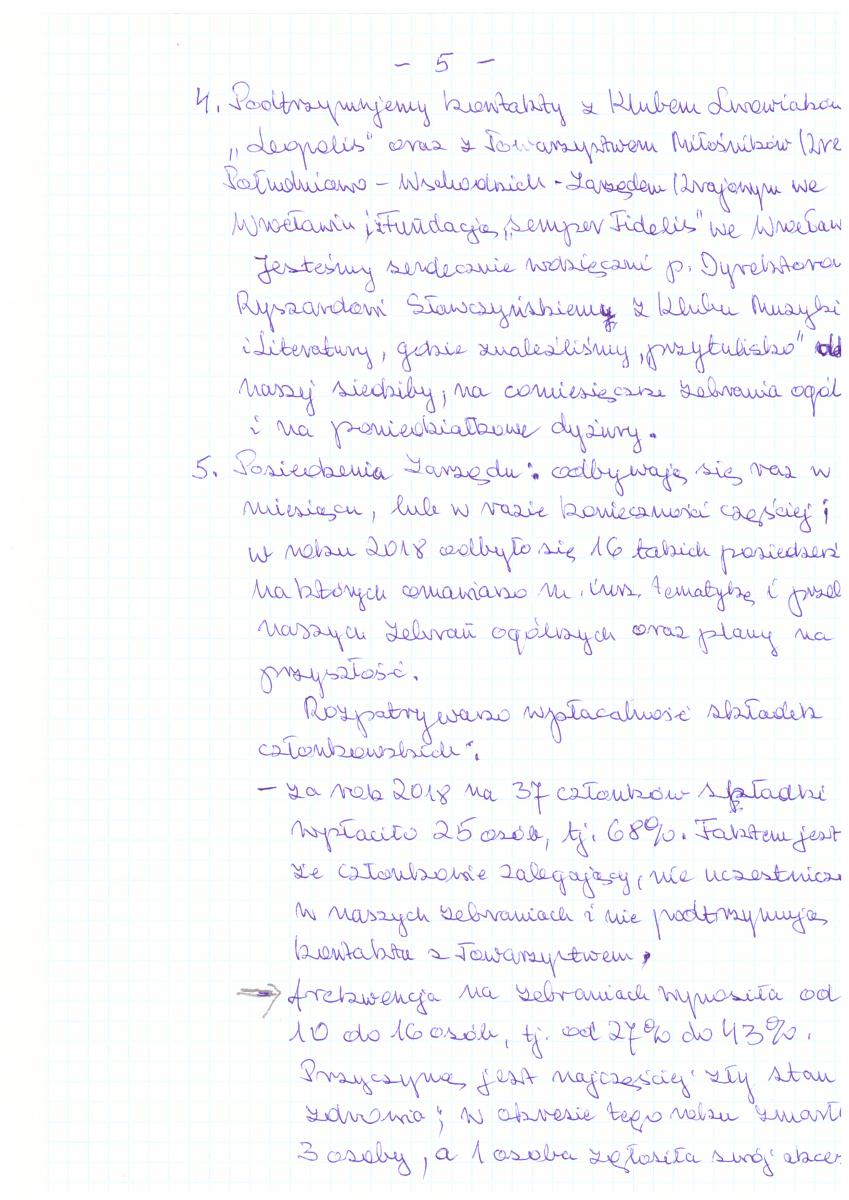 - 5 -
4. Podtrzymujemy kontakty z Klubem Lwowiaków
„Leopolis" oraz z Towarzystwem Miłośników Kre
Południowo - Wschodnich - Zarządem Krajowym we
Wrocławiu i z Fundacją „Semper Fidelis" we Wrocław
Jesteśmy serdecznie wdzięczni p. Dyrektoro
Ryszardowi Sławczyńskiemu z Klubu Muzyki
i Literatury, gdzie znaleźliśmy „przytulisko"
naszej siedziby, na comiesięczne zebrania ogól
i na poniedziałkowe dyżury.
5. Posiedzenia Zarządu: odbywają się raz w
miesiącu, lub w razie konieczności częściej;
w roku 2018 odbyło się 16 takich posiedzeń
na których omawiano m. inn. tematykę i prze
naszych zebrań ogólnych oraz plany na
przyszłość.
Rozpatrywano wpłacalność składek
członkowskich:
- za rok 2018 na 37 członków składki
wpłaciło 25 osób, tj. 68%. Faktem jest
że członkowie zalegający, nie uczestnicz
w naszych zebraniach i nie podtrzymują
kontaktu z Towarzystwem,
→ frekwencja na zebraniach wynosiła od
10 do 16 osób, tj. od 27% do 43%.
Przyczyną jest najczęściej zły stan
zdrowia; w okresie tego roku zmarł
3 osoby, a 1 osoba zgłosiła swój akce